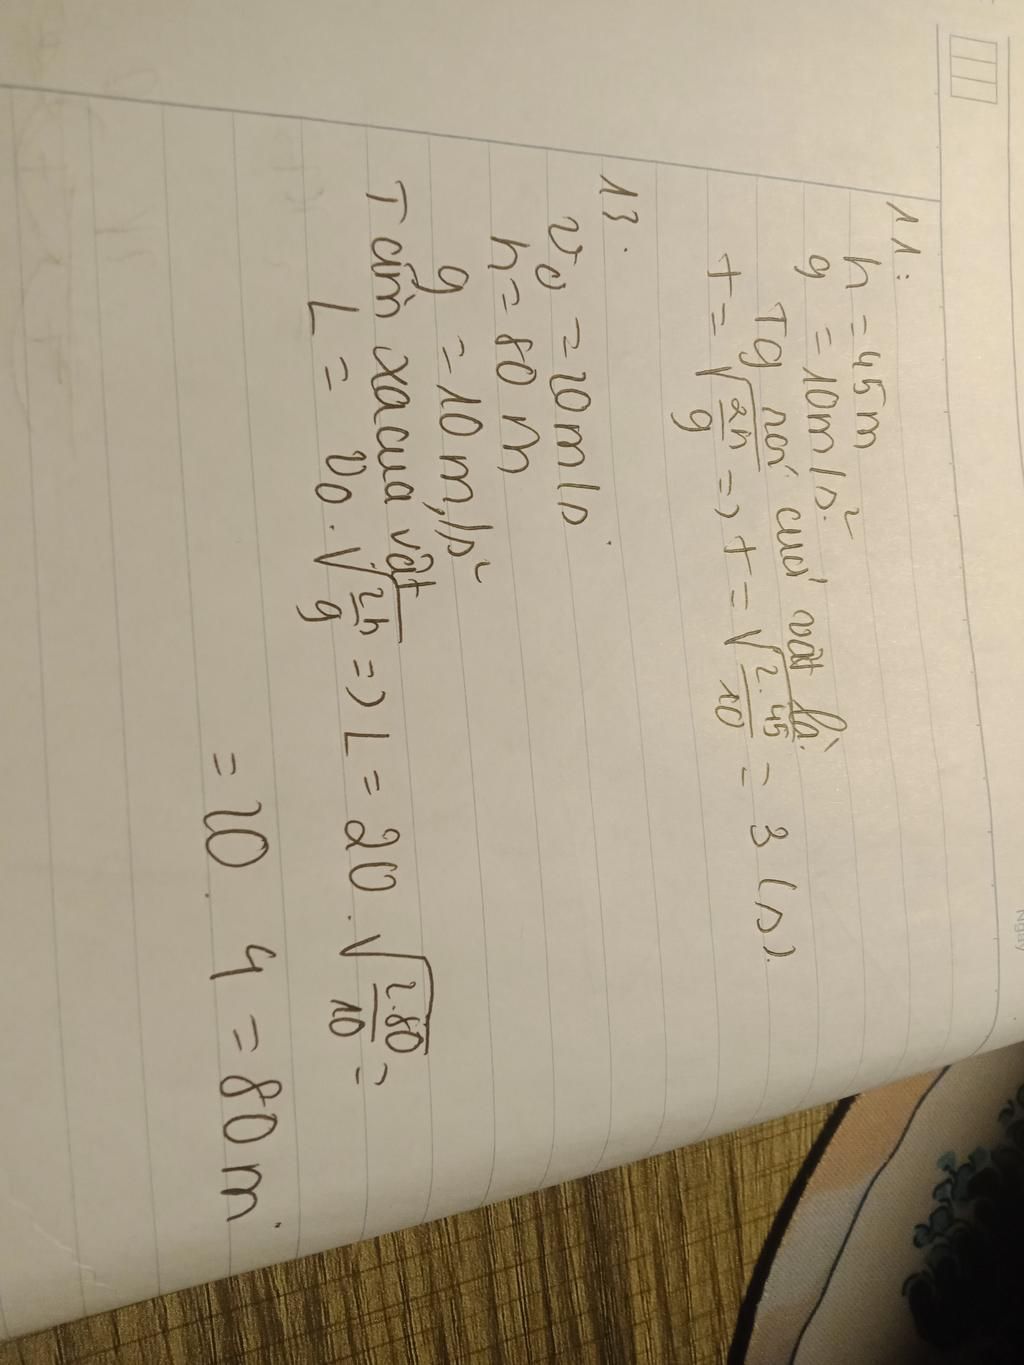 11:
h = 45m
g = 10m/s².
Tg rơi cuả vật là:
t = √2h/g => t = √2.45/10 = 3 (s).
13.
v₀ = 20m/s.
h = 80 m
g = 10 m,/s²
T cầm xa cua vật
L = v₀ . √2h/g => L = 20 . √2.80/10 =
= 20 . 4 = 80 m.
Ngày